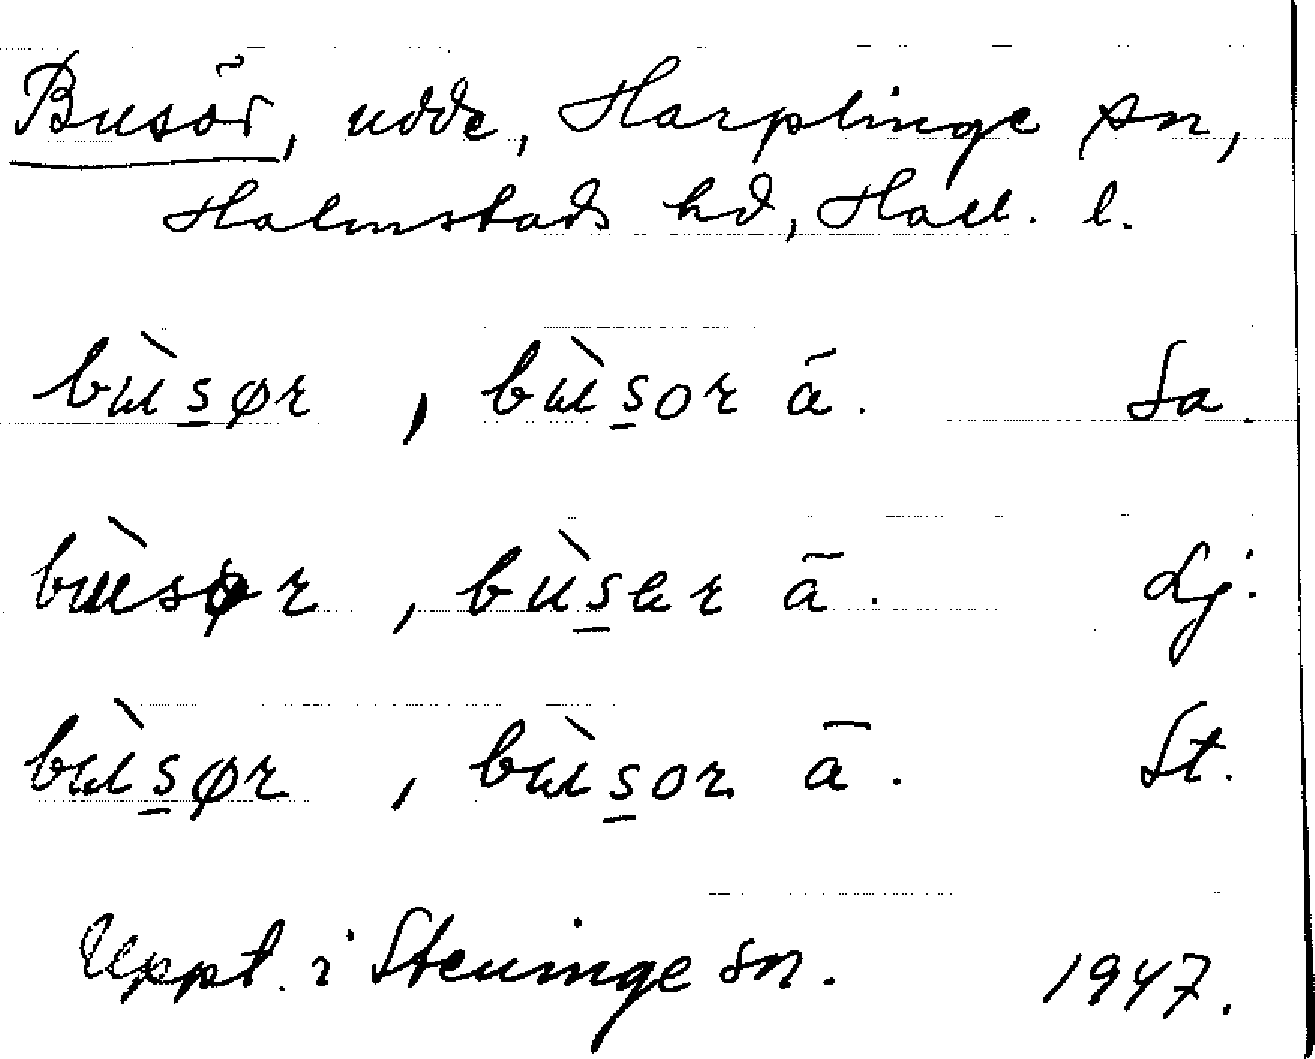 Busör, udde, Harplinge sn,
Halmstads hd, Hall. l.
bɯ̀s̲ør , bɯ̀s̲or ā. Sa.
bɯ̀sør , bùs̲ɐr ā. Lj.
bɯ̀s̲ør , bɯ̀s̲or ā. St.
Uppt. i Steninge sn. 1947.